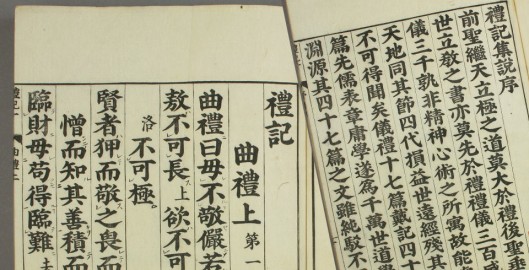 禮記集說序
前聖繼天立極之道莫大於禮後聖垂
世立敎之書亦莫先於禮禮儀三百威
儀三千孰非精神心術之所寓故能
天地同其節四代損益世遠經殘其
不可得聞矣儀禮十七篇戴記四十
篇先儒表章庸學遂爲千萬世道學
淵源其四十七篇之文雖純駁不
禮記
曲禮上 第一
曲禮曰毋不敬儼若
敖不可長上欲不可
洛不可極
賢者狎而敬之畏而
憎而知其善積而
臨財毋苟得臨難